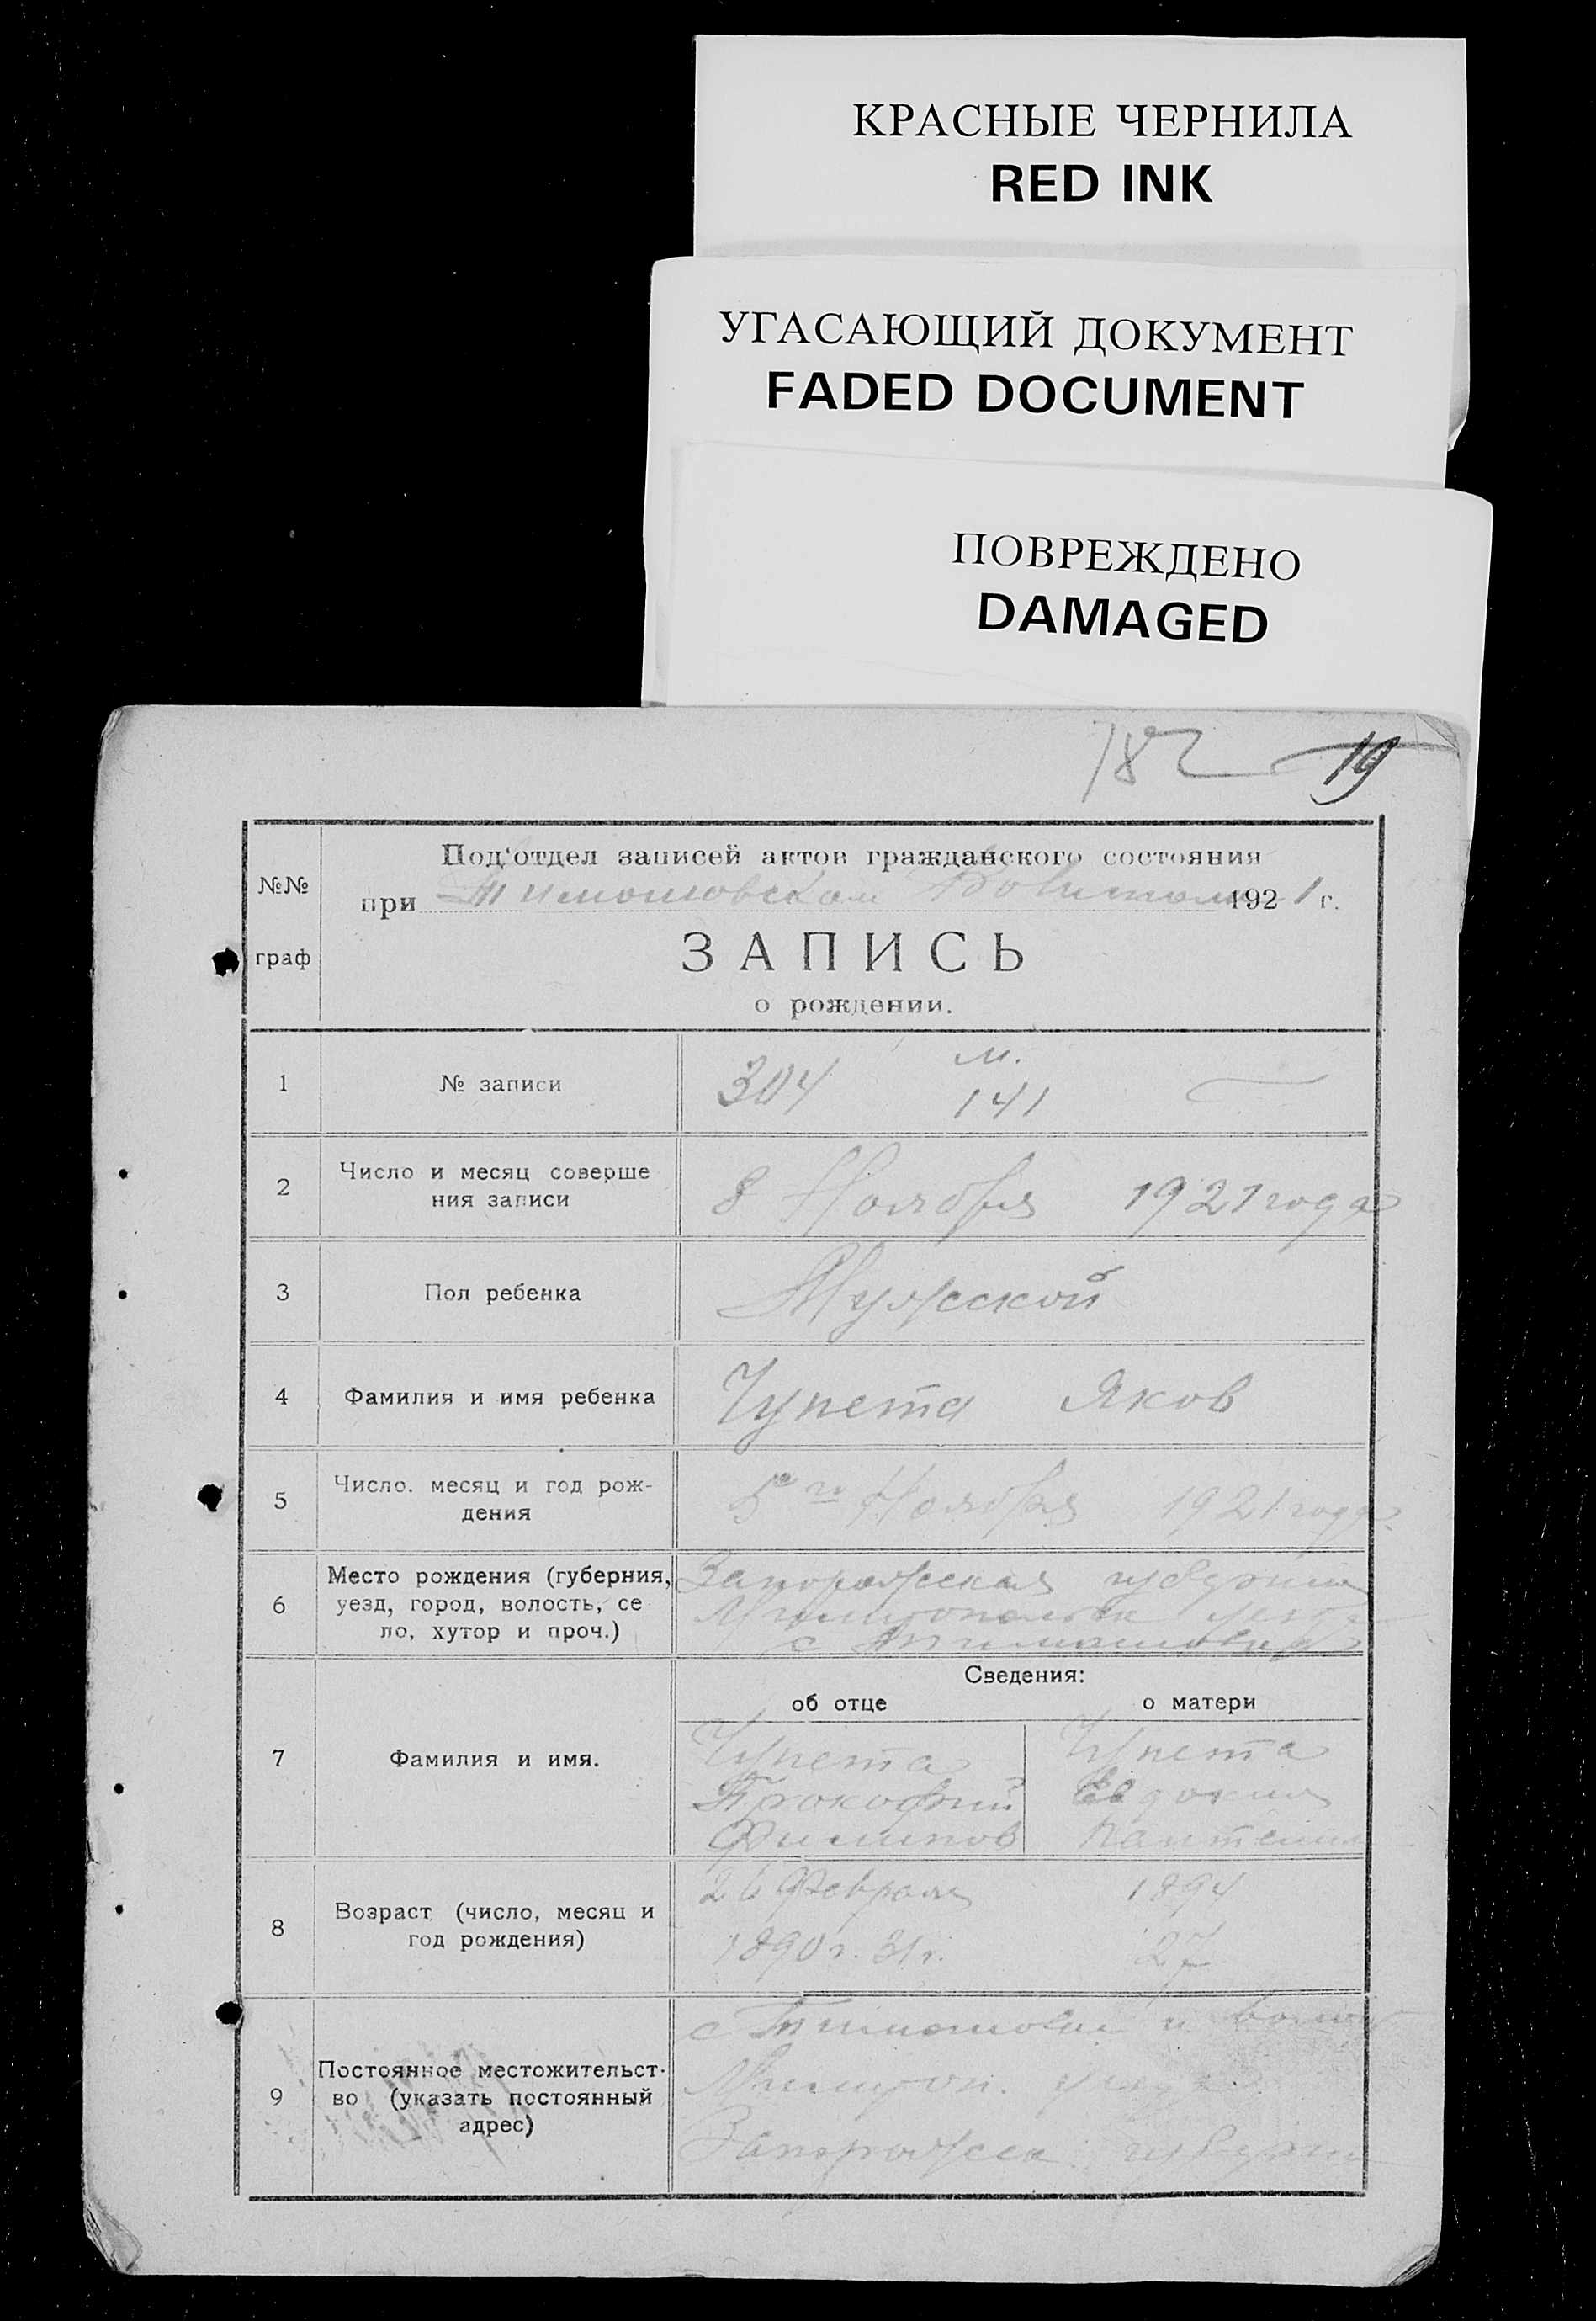 КРАСНЫЕ ЧЕРНИЛА
RED INK
УГАСАЮЩИЙ ДОКУМЕНТ
FADED DOCUMENT
ПОВРЕЖДЕНО
DAMAGED
182 19
№№
граф
Под'отдел записей актов гражданского состояния
при Тимошовском 1921 г.
ЗАПИСЬ
о рождении.
м.
1 № записи 304 141
2 Число и месяц соверше
ния записи 8 Ноября 1921 года
3 Пол ребенка Мужской
4 Фамилия и имя ребенка Чупета Яков
5 Число. месяц и год рож-
дения 5го Ноября 1921 года
6 Место рождения (губерния, Запорожская губерния
уезд, город, волость, се
ло, хутор и проч.) с Тимошовка
Сведения:
об отце о матери
7 Фамилия и имя. Чупета Чупета
Прокофий Евдокия
Филипов
8 Возраст (число, месяц и 26 Февраля 1894
год рождения) 1890 г. 31 г. 27
9 Постоянное местожительст- с Тимошовка
во (указать постоянный
адрес)
Запорожск губерни